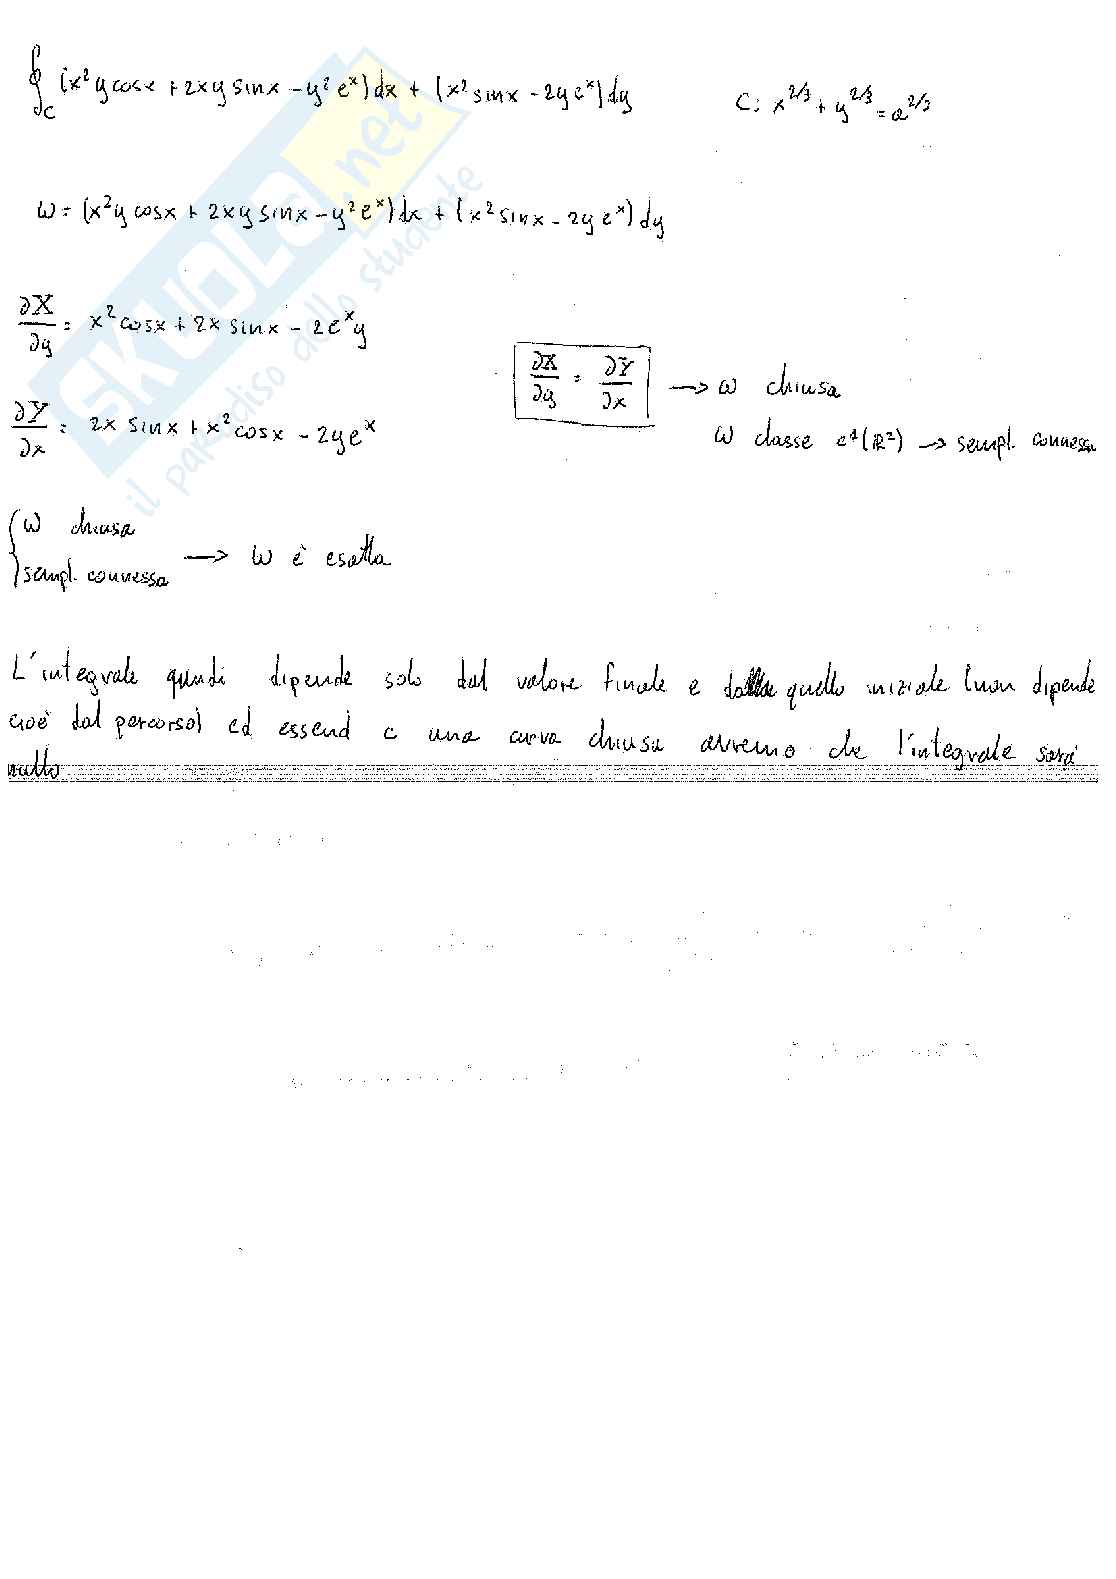 ∮_C (x² y cosx + 2xy sinx - y² e^x) dx + (x² sinx - 2y e^x) dy   C: x^{2/3} + y^{2/3} = a^{2/3}
ω = (x² y cosx + 2xy sinx - y² e^x) dx + (x² sinx - 2y e^x) dy
∂X/∂y = x² cosx + 2x sinx - 2e^x y
∂X/∂y = ∂Y/∂x → ω chiusa
∂Y/∂x = 2x sinx + x² cosx - 2y e^x
ω classe c¹(ℝ²) → sempl. connessa
{ω chiusa
sempl. connessa → ω è esatta
L'integrale quindi dipende solo dal valore finale e da quello iniziale (non dipende
cioè dal percorso) ed essend c una curva chiusa avremo che l'integrale sarà
nullo
SKUOLA.net
il paradiso dello studente